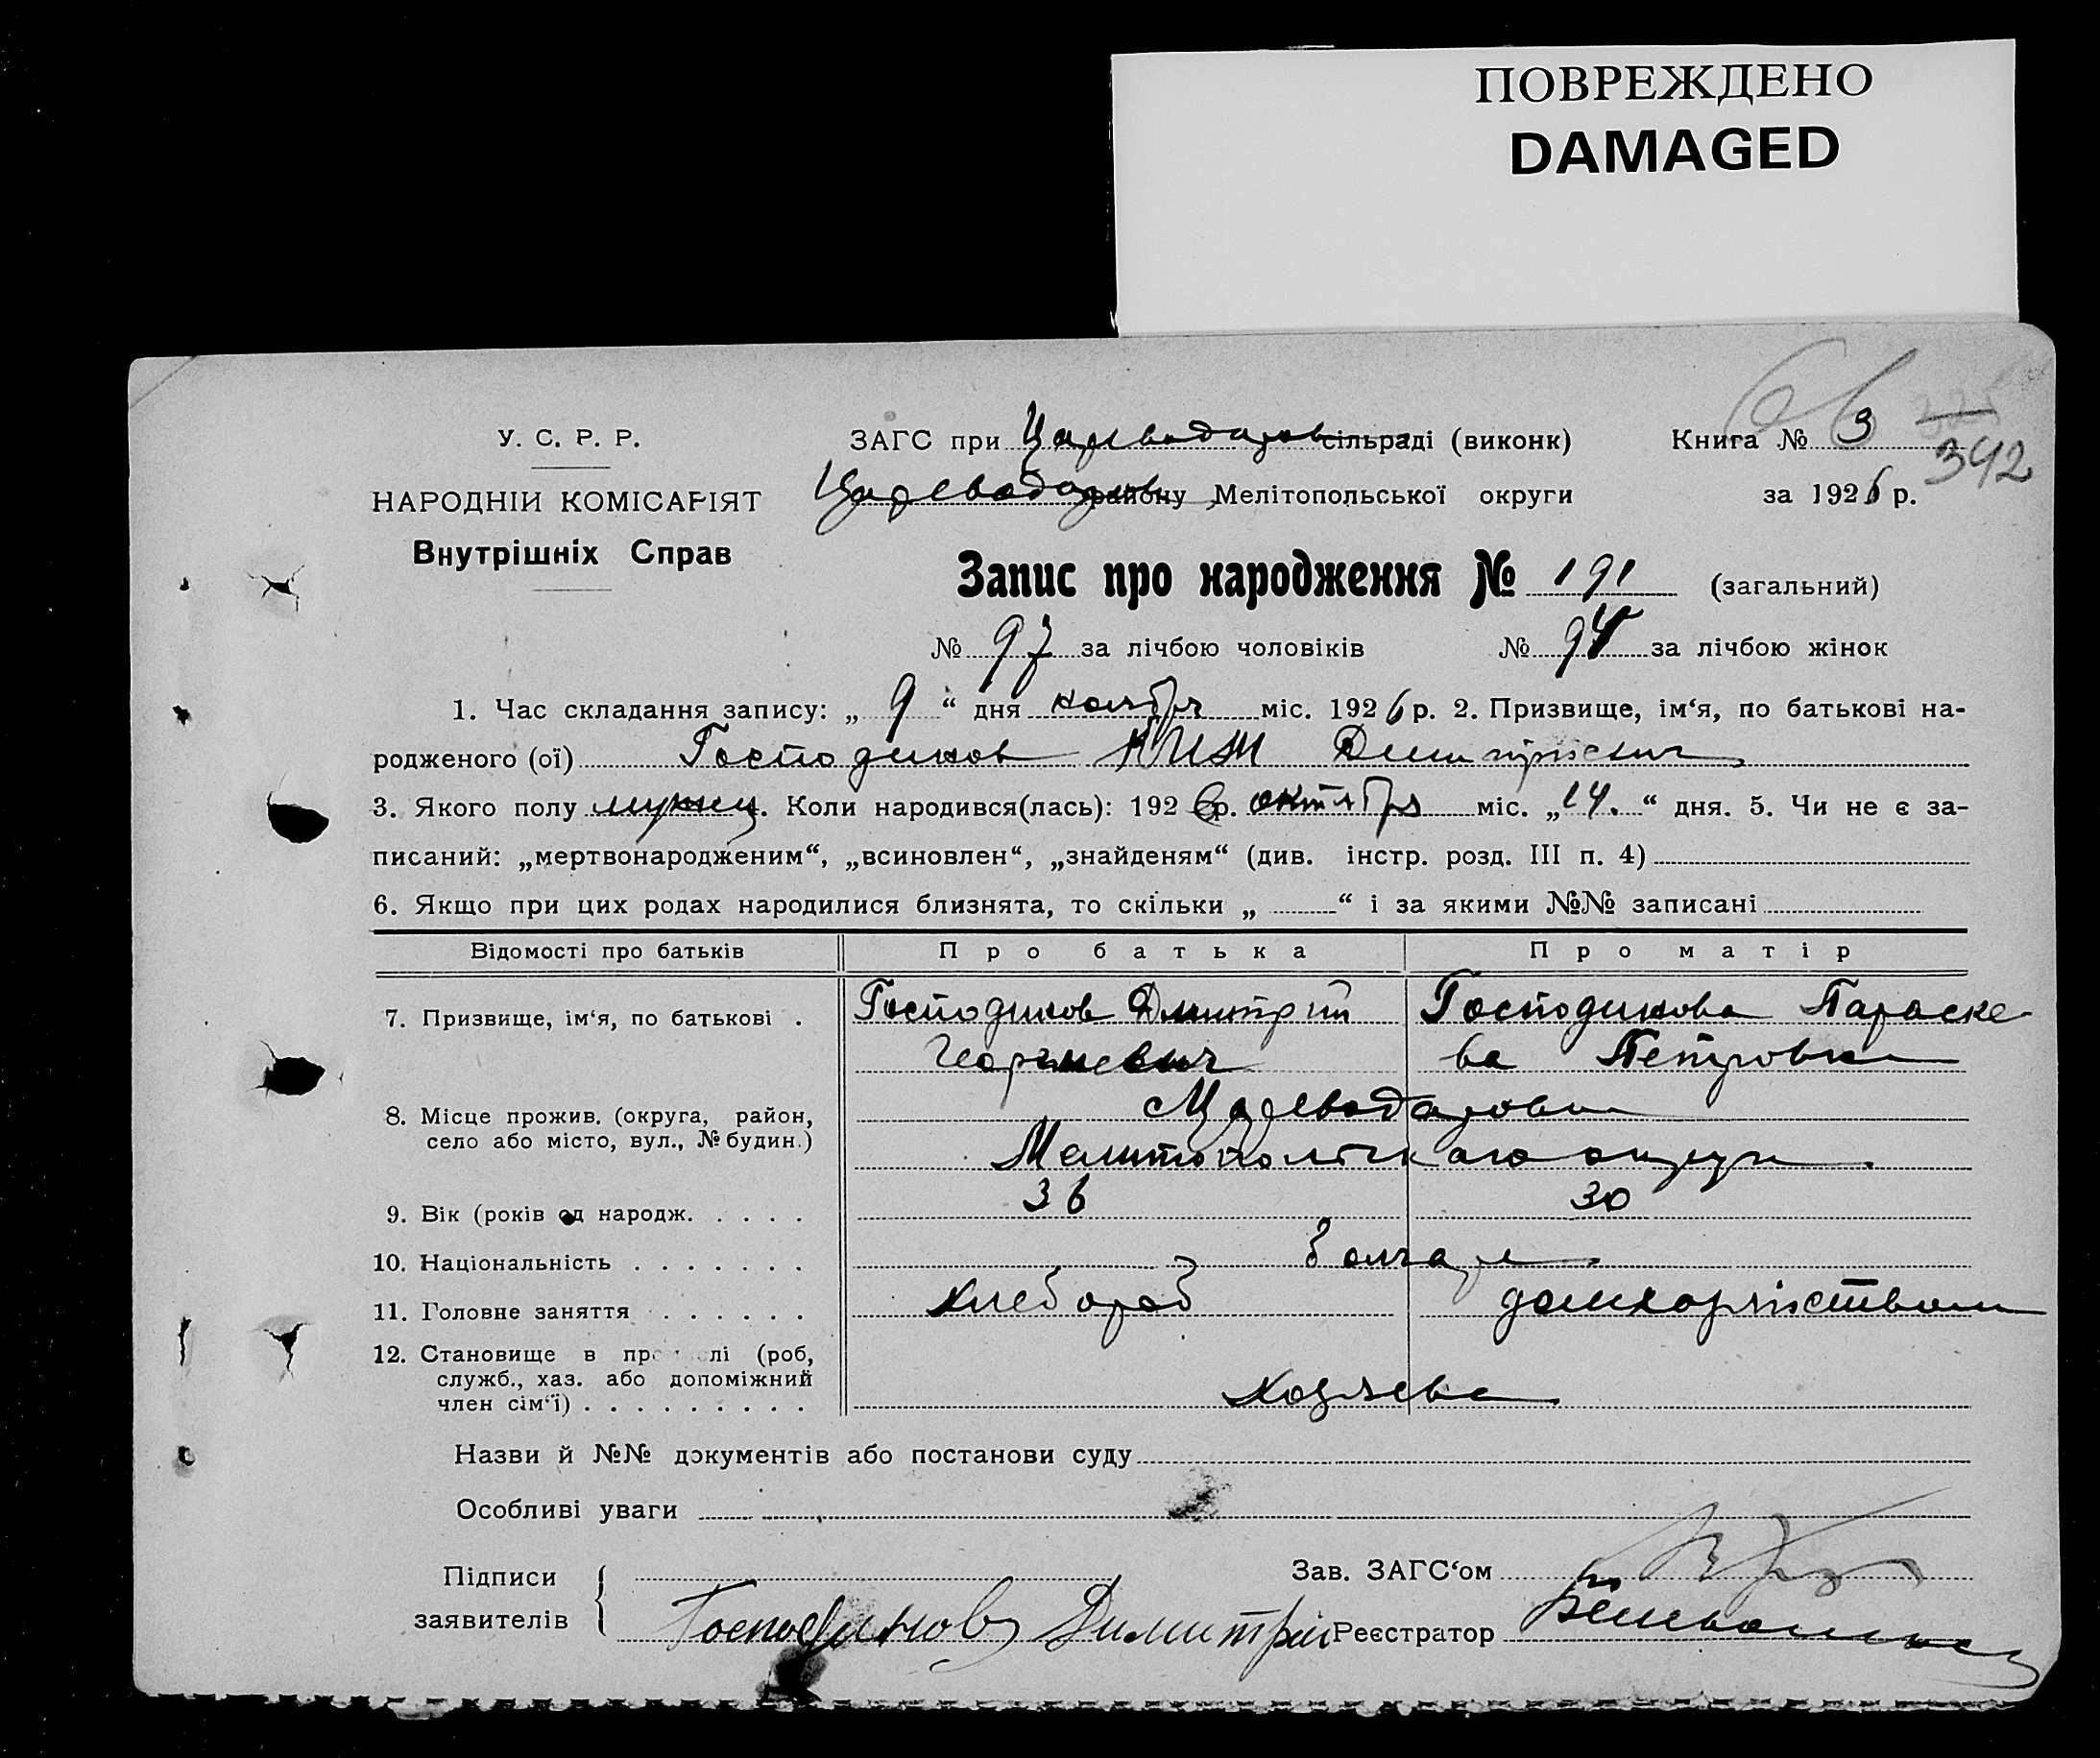 ПОВРЕЖДЕНО
DAMAGED
У. С. Р. Р.
НАРОДНІЙ КОМІСАРІЯТ
Внутрішніх Справ
ЗАГС при Царевода́ров сільраді (виконк)
Цареводаров району Мелітопольської округи
Книга № 3
342
за 1926 р.
Запис про народження № 191 (загальний)
№ 97 за лічбою чоловіків № 94 за лічбою жінок
1. Час складання запису: „ 9 “ дня ноября міс. 1926 р. 2. Призвище, ім‘я, по батькові на-
родженого (ої) Господинов КИМ Димитриевич
3. Якого полу мужц. Коли народився(лась): 1926 р. октября міс. „ 14. “ дня. 5. Чи не є за-
писаний: „мертвонародженим“, „всиновлен“, „знайденям“ (див. інстр. розд. III п. 4)
6. Якщо при цих родах народилися близнята, то скільки „ “ і за якими №№ записані
Відомості про батьків Про батька Про матір
7. Призвище, ім‘я, по батькові . Господинов Дмитрий Господинова Параске-
Георгиевич ва Петровна
8. Місце прожив. (округа, район, село або місто, вул., № будин.) Цареводаровка
Мелитопольского округа.
9. Вік (років од народж. . . . . 36 30
10. Національність . . . . . . . болгаре
11. Головне заняття . . . . . . хлебороб
12. Становище в пр лі (роб,
служб., хаз. або допоміжний
член сім‘ї) . . . . . . . . . хозяева
Назви й №№ документів або постанови суду
Особливі уваги
Підписи
заявителів
Зав. ЗАГС‘ом
Господинов Димитрий Реєстратор